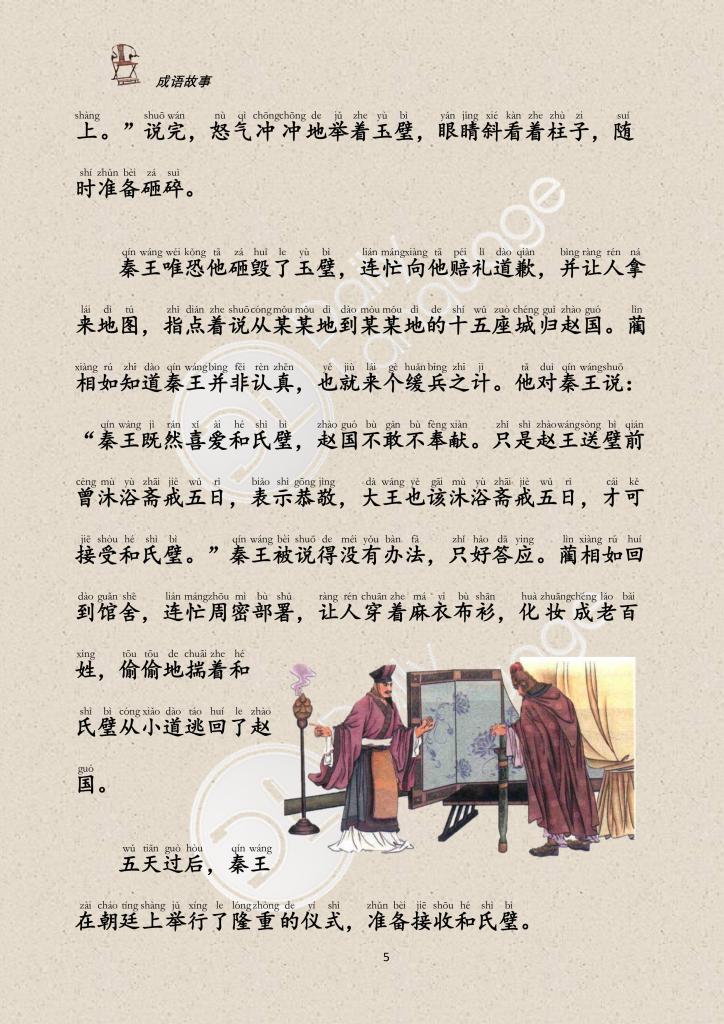 成语故事
shàng shuō wán nù qì chōngchōng de jǔ zhe yù bì yǎn jīng xié kàn zhe zhù zi suí
上。”说完，怒气冲冲地举着玉璧，眼睛斜看着柱子，随
shí zhǔn bèi zá suì
时准备砸碎。
qín wáng wéi kǒng tā zá huǐ le yù bì lián mángxiàng tā péi lǐ dào qiàn bìng ràng rén ná
秦王唯恐他砸毁了玉璧，连忙向他赔礼道歉，并让人拿
lái dì tú zhǐ diǎn zhe shuōcóngmǒu mǒu dì dào mǒu mǒu dì de shí wǔ zuò chéng guī zhào guó lìn
来地图，指点着说从某某地到某某地的十五座城归赵国。蔺
xiàng rú zhī dào qín wángbìng fēi rèn zhēn yě jiù lái gè huǎn bīng zhī jì tā duì qín wángshuō
相如知道秦王并非认真，也就来个缓兵之计。他对秦王说：
qín wáng jì rán xǐ ài hé shì bì zhào guó bù gǎn bù fèng xiàn zhǐ shì zhàowángsòng bì qián
“秦王既然喜爱和氏璧，赵国不敢不奉献。只是赵王送璧前
céng mù yù zhāi jiè wǔ rì biǎo shì gōng jìng dà wáng yě gāi mù yù zhāi jiè wǔ rì cái kě
曾沐浴斋戒五日，表示恭敬，大王也该沐浴斋戒五日，才可
jiē shòu hé shì bì qín wáng bèi shuō de méi yǒu bàn fǎ zhǐ hǎo dā ying lìn xiàng rú huí
接受和氏璧。”秦王被说得没有办法，只好答应。蔺相如回
dào guǎn shè lián mángzhōu mì bù shǔ ràng rén chuān zhe má yī bù shān huà zhuāngchéng lǎo bǎi
到馆舍，连忙周密部署，让人穿着麻衣布衫，化妆成老百
xìng tōu tōu de chuāi zhe hé
姓，偷偷地揣着和
shì bì cóng xiǎo dào táo huí le zhào
氏璧从小道逃回了赵
guó
国。
wǔ tiān guò hòu qín wáng
五天过后，秦王
zài cháo tíng shàng jǔ xíng le lóng zhòng de yí shì zhǔn bèi jiē shōu hé shì bì
在朝廷上举行了隆重的仪式，准备接收和氏璧。
5
Daily
Language
DL
Daily
Language
DL